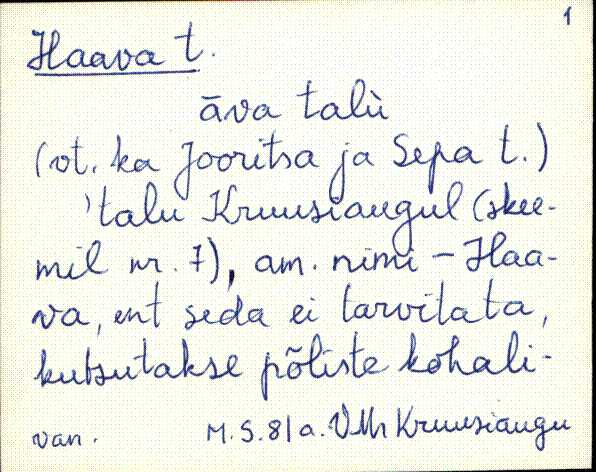 1
Haava t.
āva talù
(vt. ka Jooritsa ja Sepa t.)
'talu Kruusiaugul (skee-
mil nr. 7), am. nimi - Haa-
va, ent seda ei tarvitata,
kutsutakse põliste kohali-
van. M.S.81a. VMr Kruusiaugu